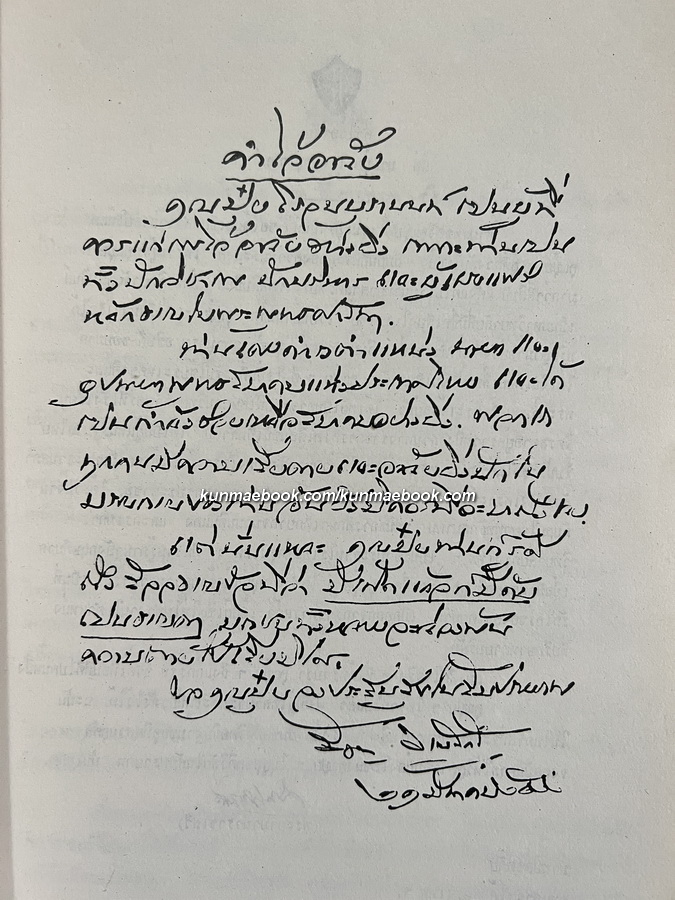 คำไว้อาลัย
คุณปุ๋ย โรจนบุรานนท์ เป็นผู้ที่
ควรแก่การไว้อาลัยอย่างยิ่ง เพราะท่านเป็น
ทั้งนักวิชาการ นักบริหาร และผู้เผยแพร่
หลักธรรมในพระพุทธศาสนา.
ท่านได้เคยดำรงตำแหน่ง นายก และ
อุปนายกพุทธสมาคมแห่งประเทศไทย และได้
เป็นกำลังช่วยเหลือสมาคมอย่างยิ่ง.
ทุกคนมีความเสียดายและอาลัยยิ่งนักใน
มรณกรรมของท่าน
kunmaebook.com/kunmaebook.com
แต่นั่นแหละ คุณปุ๋ยท่านก็รู้ดี
ถึงสัจจธรรมข้อที่ว่า มีเกิดแล้วก็มีดับ
เป็นธรรมดา มนุษย์ทั้งหลายจะล่วงพ้น
ความตายไปไม่ได้.
ขอคุณปุ๋ยจงประสบสุขในสัมปรายภพ
สัญญา ธรรมศักดิ์
๒๑ มีนาคม